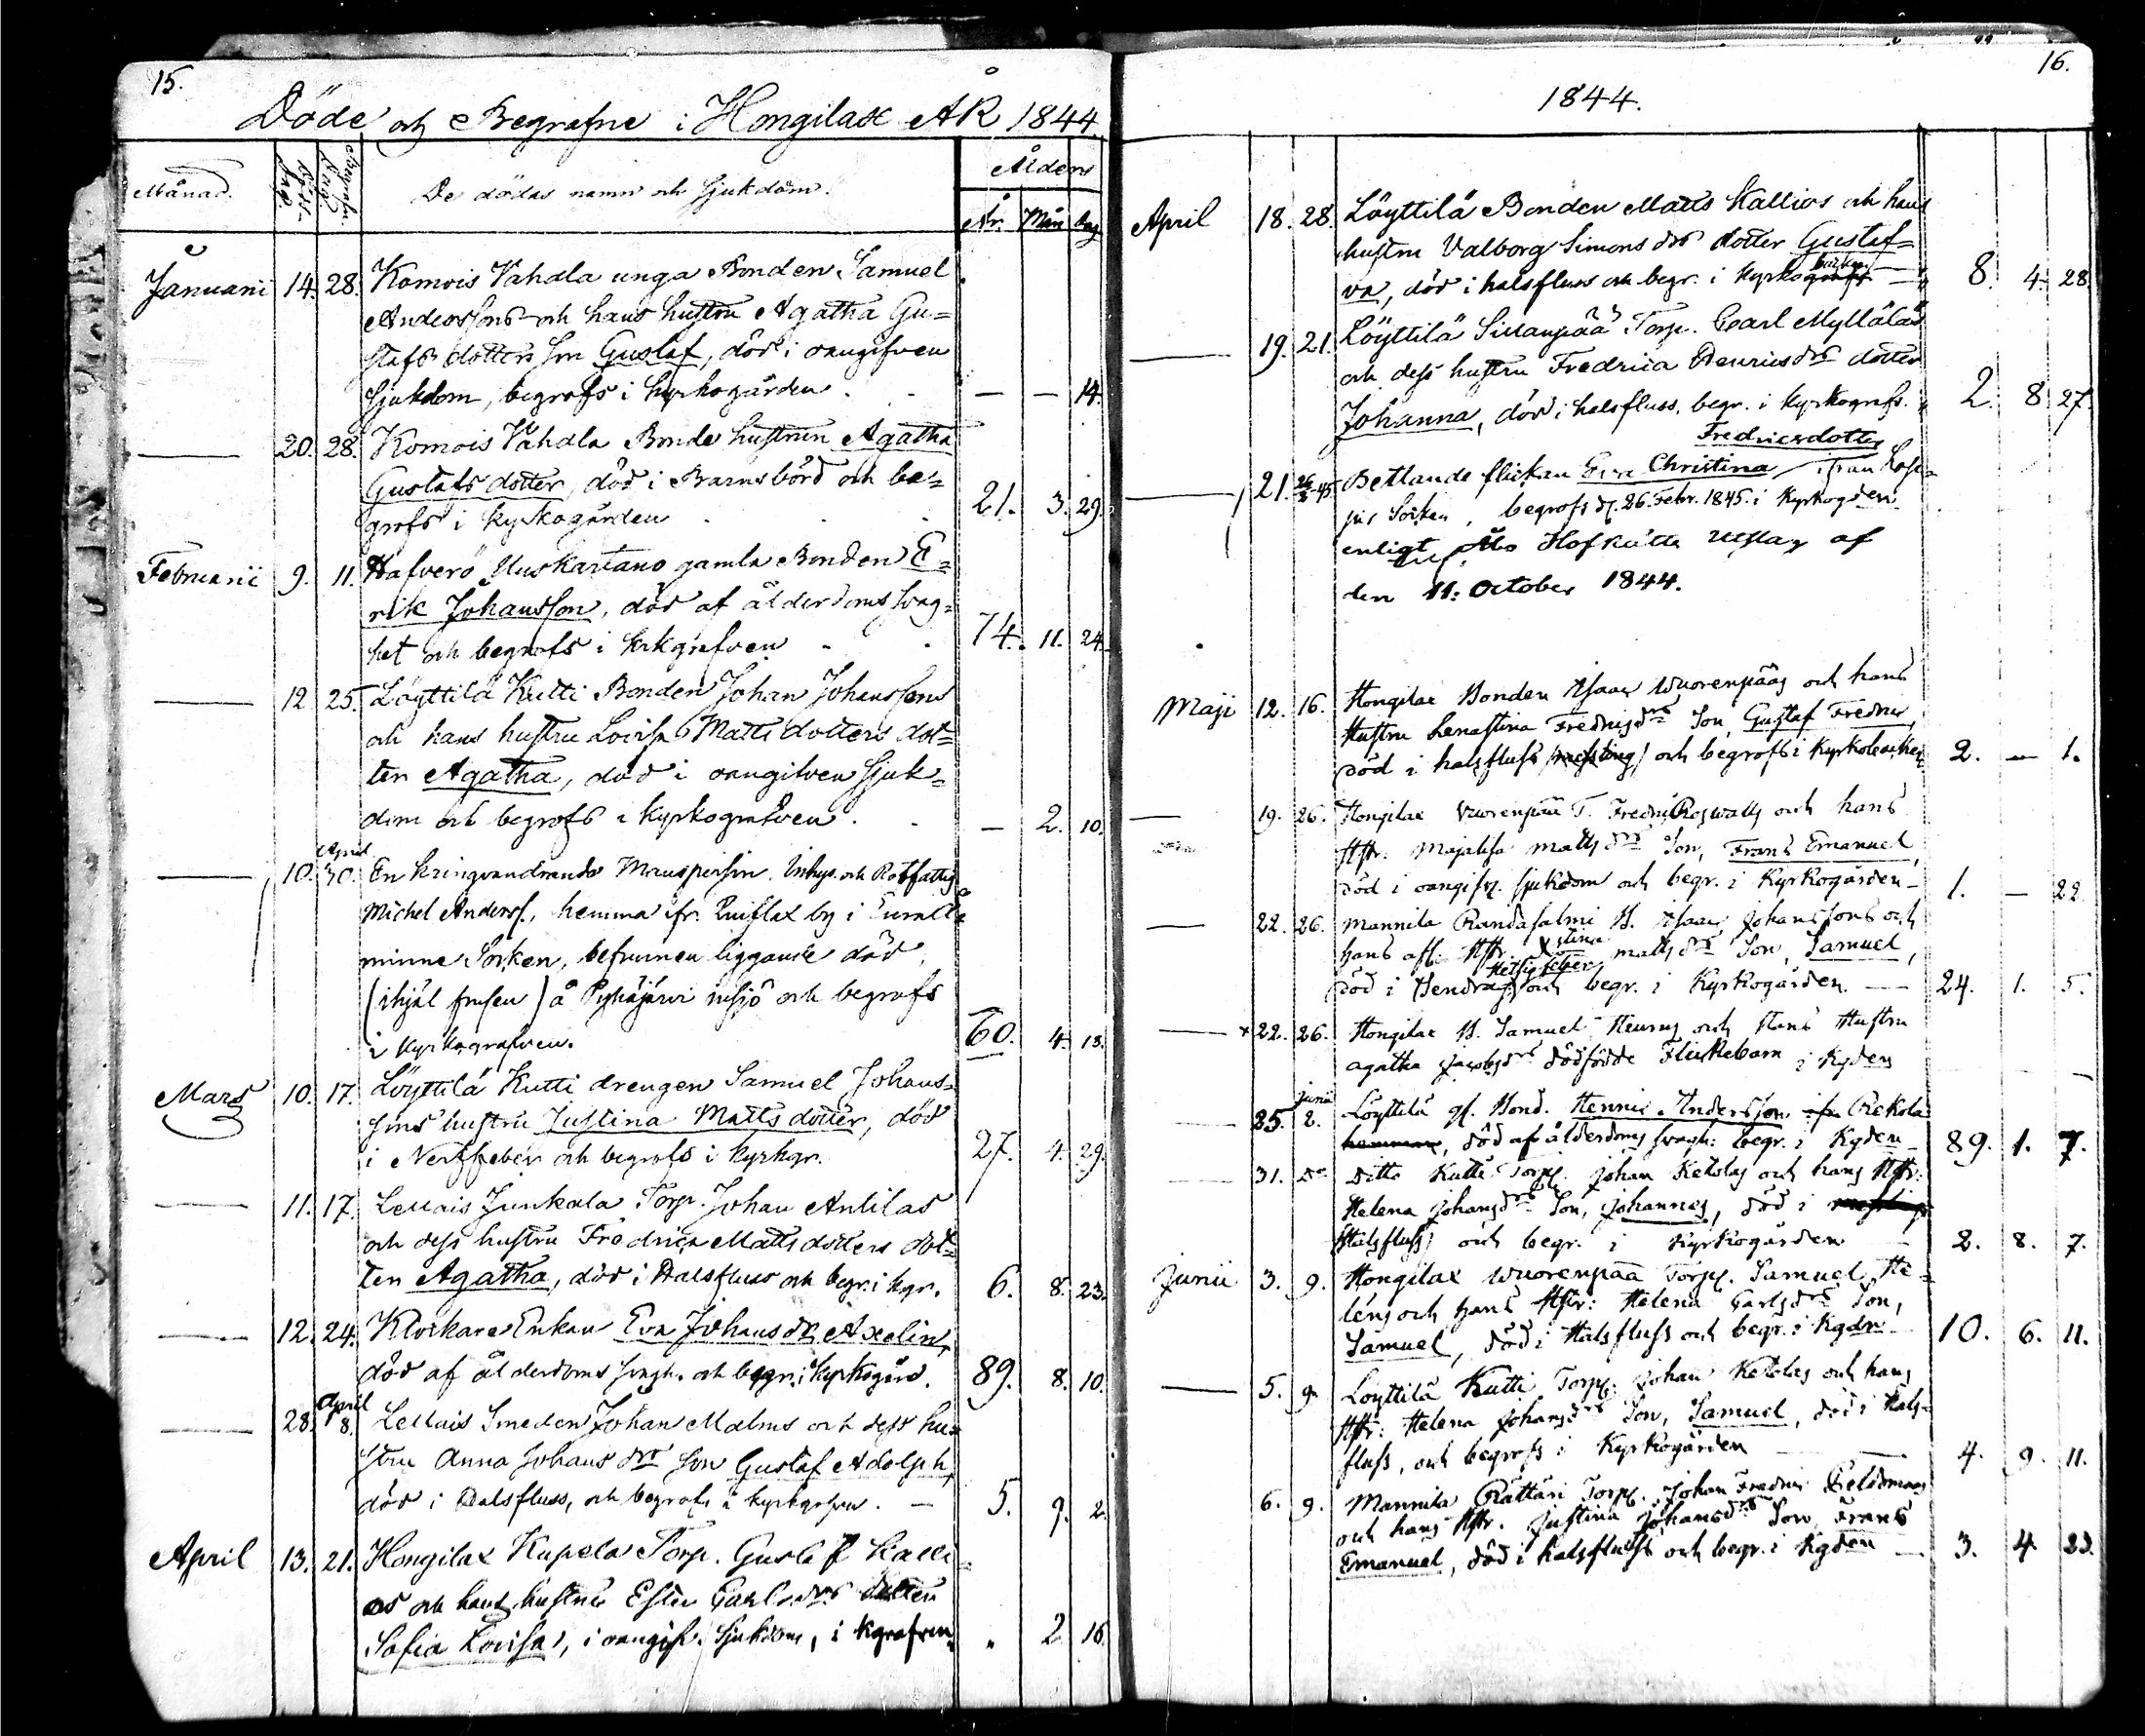 15.
Döde och Begrafne i Hongilax ÅR 1844
Månad. Begrafn. Dag. De dödas namn och sjukdom. Ålder
År. Mån. dag
Januarii 14. 28. Komois Vahala unga Bonden Samuel
Anderssons och hans hustru Agatha Gu=
stafs dotters son Gustaf, död i oangifven
sjukdom, begrofs i kyrkogården. — — 14.
— 20. 28. Komois Vahala Bonde hustrun Agatha
Gustafs dotter, död i Barnsbörd och be=
grofs i kyrkogården 21. 3. 29.
Februarii 9. 11. Hafverö Uuskartano gamla Bonden E=
rik Johansson, död af ålderdoms svag=
het och begrofs i krkgrafven 74. 11. 24.
— 12 25. Löyttilä Kutti Bonden Johan Johanssons
och hans hustru Lovisa Matts dotters dot=
ter Agatha, död i oangifven sjuk=
dom och begrofs i kyrkografven. — 2. 10.
April
— 10. 30. En kringvandrande Mansperson. Inhys. och Rotfattig
Michel Anderss., hemma ifr. by i Euraå
minne Socken, befunnen liggande död,
(ihjäl frusen) å Pyhäjärvi insjö och begrofs
i kyrkografven. 60. 4. 13.
Mars 10. 17. Löyttilä Kutti drengen Samuel Johans=
sons hustru Justina Matts dotter, död
i Nerffeber och begrofs i kyrkgr. 27. 4. 29.
— 11. 17. Lellais Junkala Torp. Johan Antilas
och dess hustru Fredrica Matts dotters dot=
ter Agatha, död i Halsfluss och begr. i kgr. 6. 8. 23.
— 12. 24. Klockare Enkan Eva Johansdr. Axelin,
död af ålderdoms svagh. och begr. i kyrkogård. 89. 8. 10.
April
— 28. 8. Lellais Smeden Johan Malms och dess hu=
stru Anna Johans drs son Gustaf Adolph,
död i Halsfluss, och begrofs i kyrkgrfvn. — 5. 9. 2.
April 13. 21. Hongilax Kupela Torp. Gustaf Kalli=
os och hans hustrus Ester Carls drs dotter
Sofia Lovisa, i oangifv. sjukdom, i kgrafven. " 2 16.
16.
1844.
April 18. 28. Löyttilä Bonden Matts Kallios och hans
hustru Valborg Simons drs dotter Gustaf=
va, död i halsfluss och begr. i kyrkog — 8. 4. 28.
— 19. 21. Löyttilä Sillanpää Torp. Carl Mylläläs
och dess hustru Fredrica Henricsdrs dotter
Johanna, död i halsfluss, begr. i kyrkografv. 2. 8 27.
Fredricsdotter
— 21. 26/2 45 Betlande flickan Eva Christina, ifrån
Socken, begrofs d. 26. Febr. 1845. i Kyrkogden
enligt Åbo Hofrätts Utslag af
den 11. October 1844.
Maji 12. 16. Hongilax Bonden Isaac Wuorenpääs och hans
Hustru Lenastina Fredricsdrs Son, Gustaf Fredric,
död i halsfluss och begrofs i Kyrkobacken 2. — 1.
— 19. 26. Hongilax Vuorenpää T. Fredric Roswalls och hans
Hstr. Majalisa mattsdrs Son, Frans Emanuel,
död i oangifv. sjukdom och begr. i Kyrkogården — 1. — 22.
— 22. 26. Mannila Randasalmi B. Isaac Johanssons och
hans afl. Hstr. stina mattsdrs Son, Samuel,
Hetsig feber
död i och begr. i Kyrkogården. — 24. 1. 5.
— × 22. 26. Hongilax B. Samuel och Hans Hustru
agatha Jacobsdrs dödfödde Flickebarn i Kgden
juni
— 25. 2. Löyttilä gl. Bond. Henric Andersson Rekola
hemman, död af ålderdoms svagh: begr. i Kgden — 89. 1. 7.
— 31. Do Ditto Kutti Torp. Johan Ketolas och hans Hstr:
Helena Johansdrs Son, Johannes, död i
Halsfluss och begr. i Kyrkogården 2. 8. 7.
Junii 3. 9. Hongilax Wuorenpää Torp. Samuel He=
léns och hans Hstr: Helena Carlsdrs Son,
Samuel, död i Halsfluss och begr. i Kgdn 10. 6. 11.
— 5. 9. Löyttilä Kutti Torp. Johan Ketolas och hans
Hstr: Helena Johansdrs Son, Samuel, död i Hals=
fluss, och begrofs i Kyrkogården — 4. 9. 11.
6. 9. Mannila Rättäri Torp. Johan Fredric Feldtmans
och hans Hstr. Justina Johansdrs Son Frans
Emanuel, död i halsfluss och begr. i Kgden — 3. 4 23.